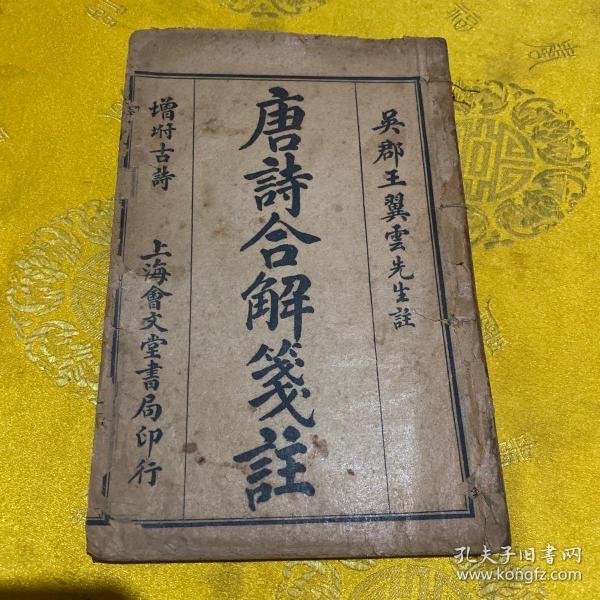 吳郡王翼雲先生註
唐詩合解箋註
增坿古詩
上海會文堂書局印行
孔夫子旧书网
www.kongfz.com